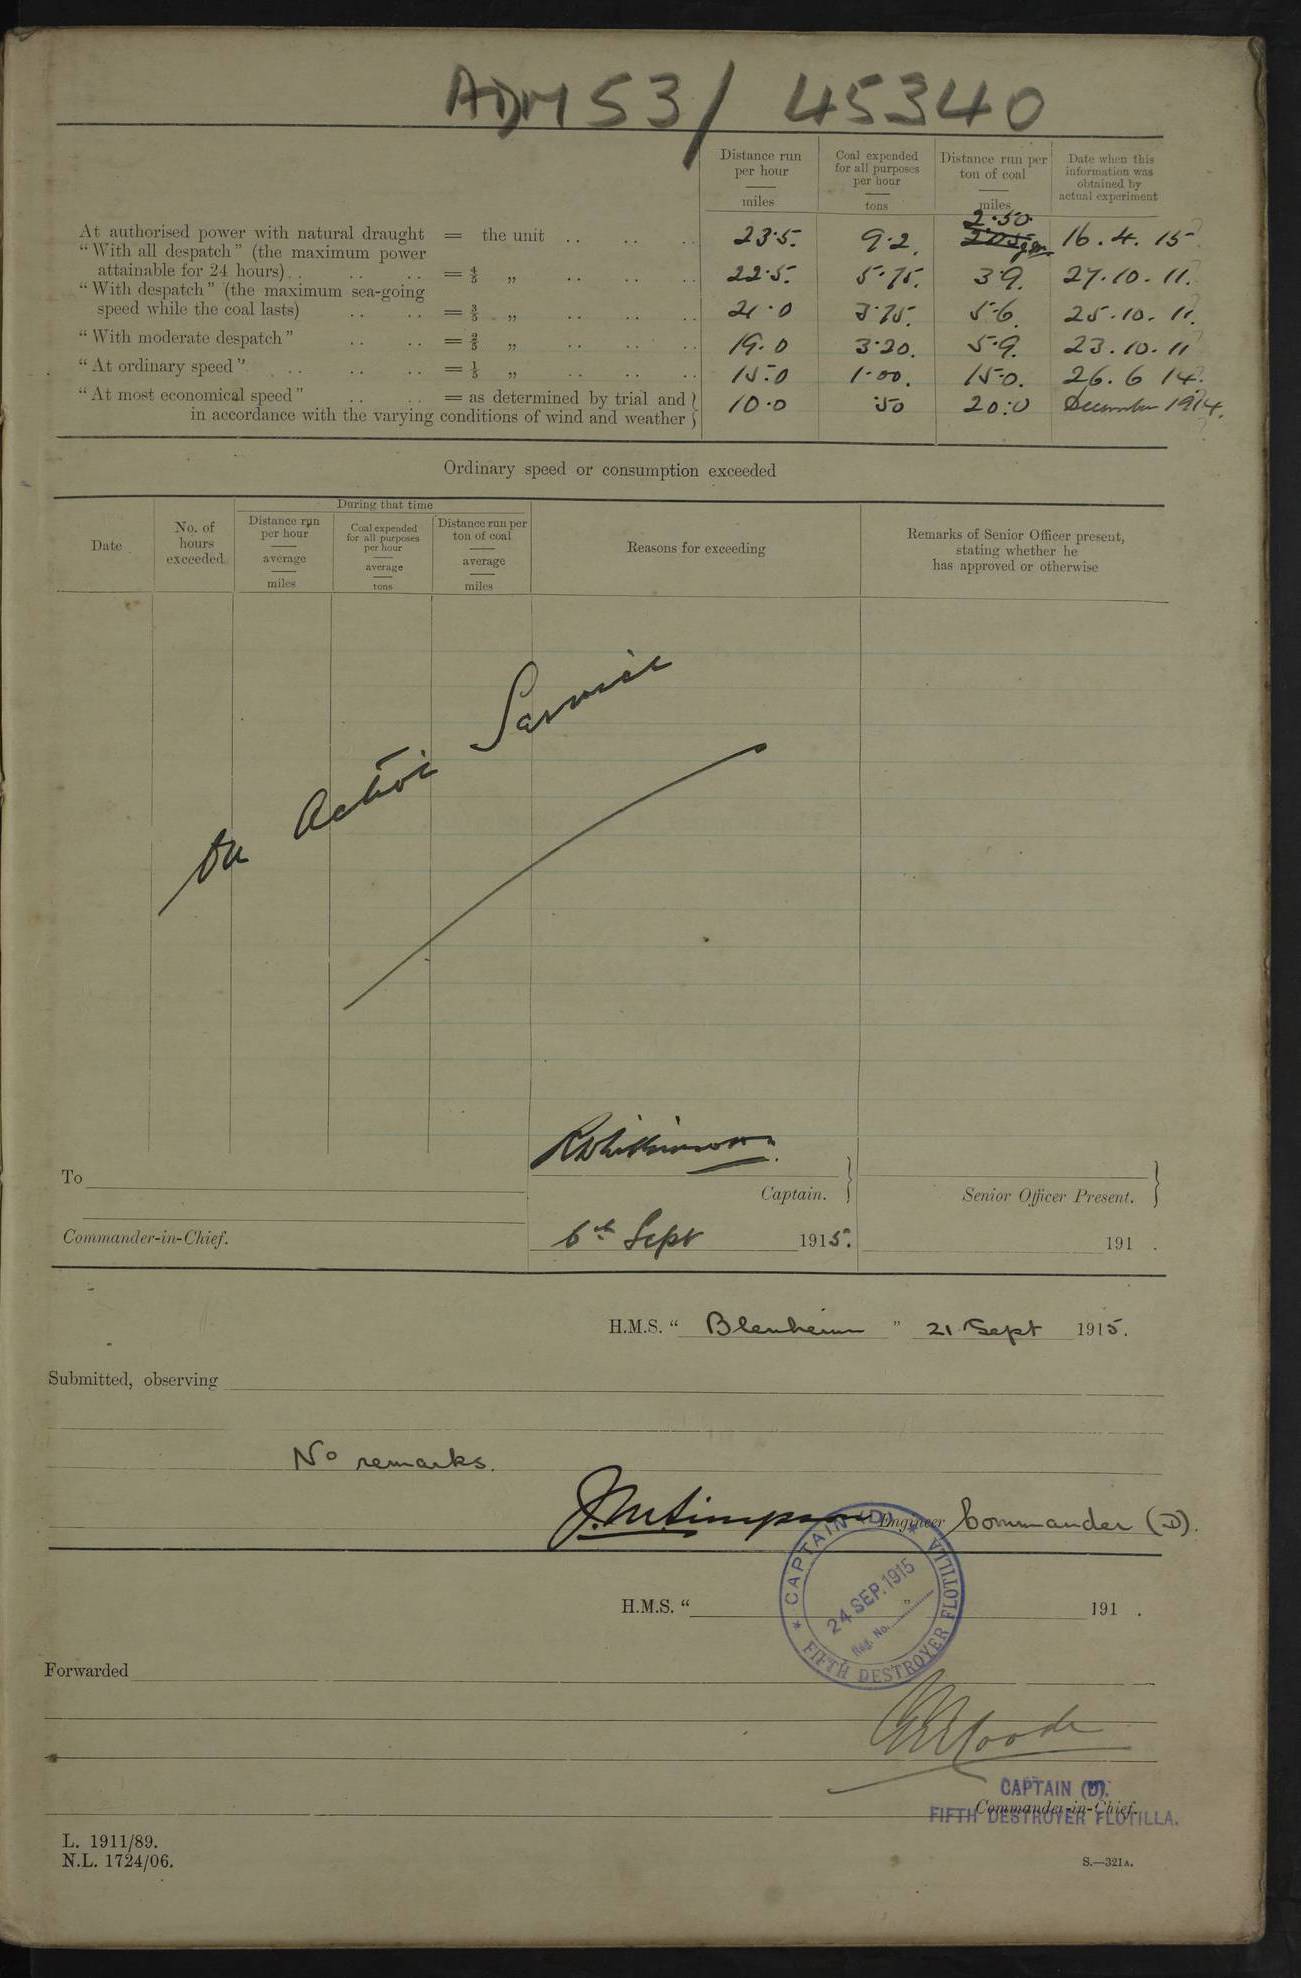 ADM 53/ 45340
Distance run per hour miles
Coal expended for all purposes per hour tons
Distance run per ton of coal miles
Date when this information was obtained by actual experiment
At authorised power with natural draught = the unit .. .. .. 23·5. 9·2. 2·50 16. 4. 15
“With all despatch” (the maximum power
attainable for 24 hours) .. .. .. = 4/5 „ .. .. .. 22·5. 5·75. 3·9. 27. 10. 11.
“With despatch” (the maximum sea-going
speed while the coal lasts) .. .. = 3/5 „ .. .. .. 21·0 3·75. 5·6. 25. 10. 11.
“With moderate despatch” .. .. = 2/5 „ .. .. .. 19·0 3·20. 5·9. 23. 10. 11
“At ordinary speed” .. .. .. = 1/5 „ .. .. .. 15·0 1·00. 15·0. 26. 6 14.
“At most economical speed” .. .. = as determined by trial and } 10·0 ·50 20·0 December 1914.
in accordance with the varying conditions of wind and weather }
Ordinary speed or consumption exceeded
Date
No. of hours exceeded
During that time
Distance run per hour average miles
Coal expended for all purposes per hour average tons
Distance run per ton of coal average miles
Reasons for exceeding
Remarks of Senior Officer present, stating whether he has approved or otherwise
On Active Service
To
RWilkinson
Captain. }
Senior Officer Present. }
Commander-in-Chief.
6th Sept 1915.
191 .
H.M.S. “ Blenheim ” 21 Sept 1915.
Submitted, observing
No remarks.
J.M.Simpson Engineer Commander (D).
* CAPTAIN (D) * FIFTH DESTROYER FLOTILLA
24 SEP. 1915
Reg. No.
H.M.S. “ ” 191 .
Forwarded
CAPTAIN (D).
Commander-in-Chief.
FIFTH DESTROYER FLOTILLA.
L. 1911/89.
N.L. 1724/06.
S.—321A.